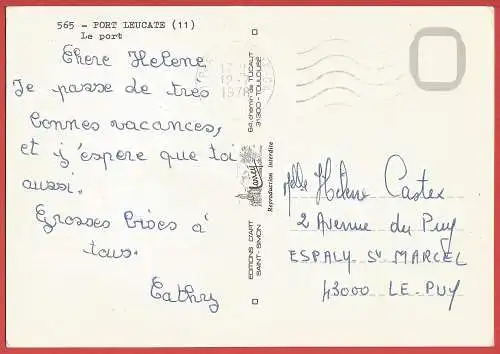 565 - PORT LEUCATE (11)
Le port
Chere Helene
Je passe de très
bonnes vacances,
et j'espere que toi
aussi.
Grosses bises à
tous.
Cathy
1978
64, chemin de TUCAUT
31300 - TOULOUSE
Reproduction interdite
EDITIONS D'ART
SAINT-SIMON
Mlle Hélène Castex
2 Avenue du Puy
ESPALY St MARCEL
43000 LE-PUY